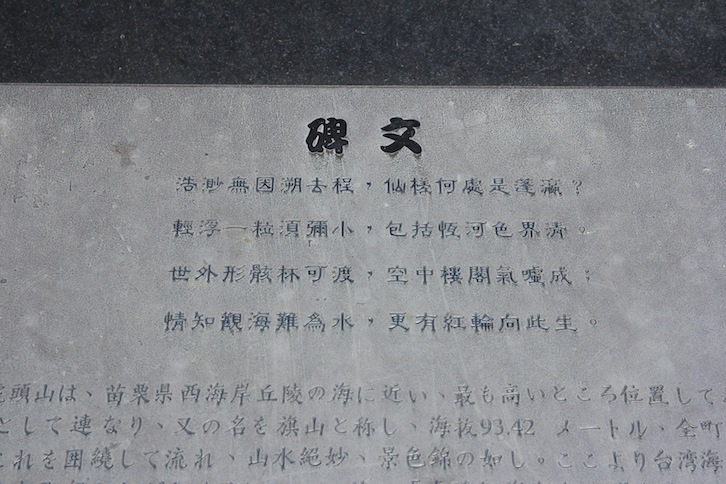 碑文
浩渺無因溯去程，仙槎何處是蓬瀛？
輕浮一粒須彌小，包括恆河色界清。
世外形骸杯可渡，空中樓閣氣噓成；
情知觀海難為水，更有紅輪向此生。
頭山は、苗栗県西海岸丘陵の海に近い、最も高いところ位置して
として連なり、又の名を旗山と称し、海抜93.42 メートル、全町
これを囲繞して流れ、山水絶妙、景色錦の如し。ここより台湾海